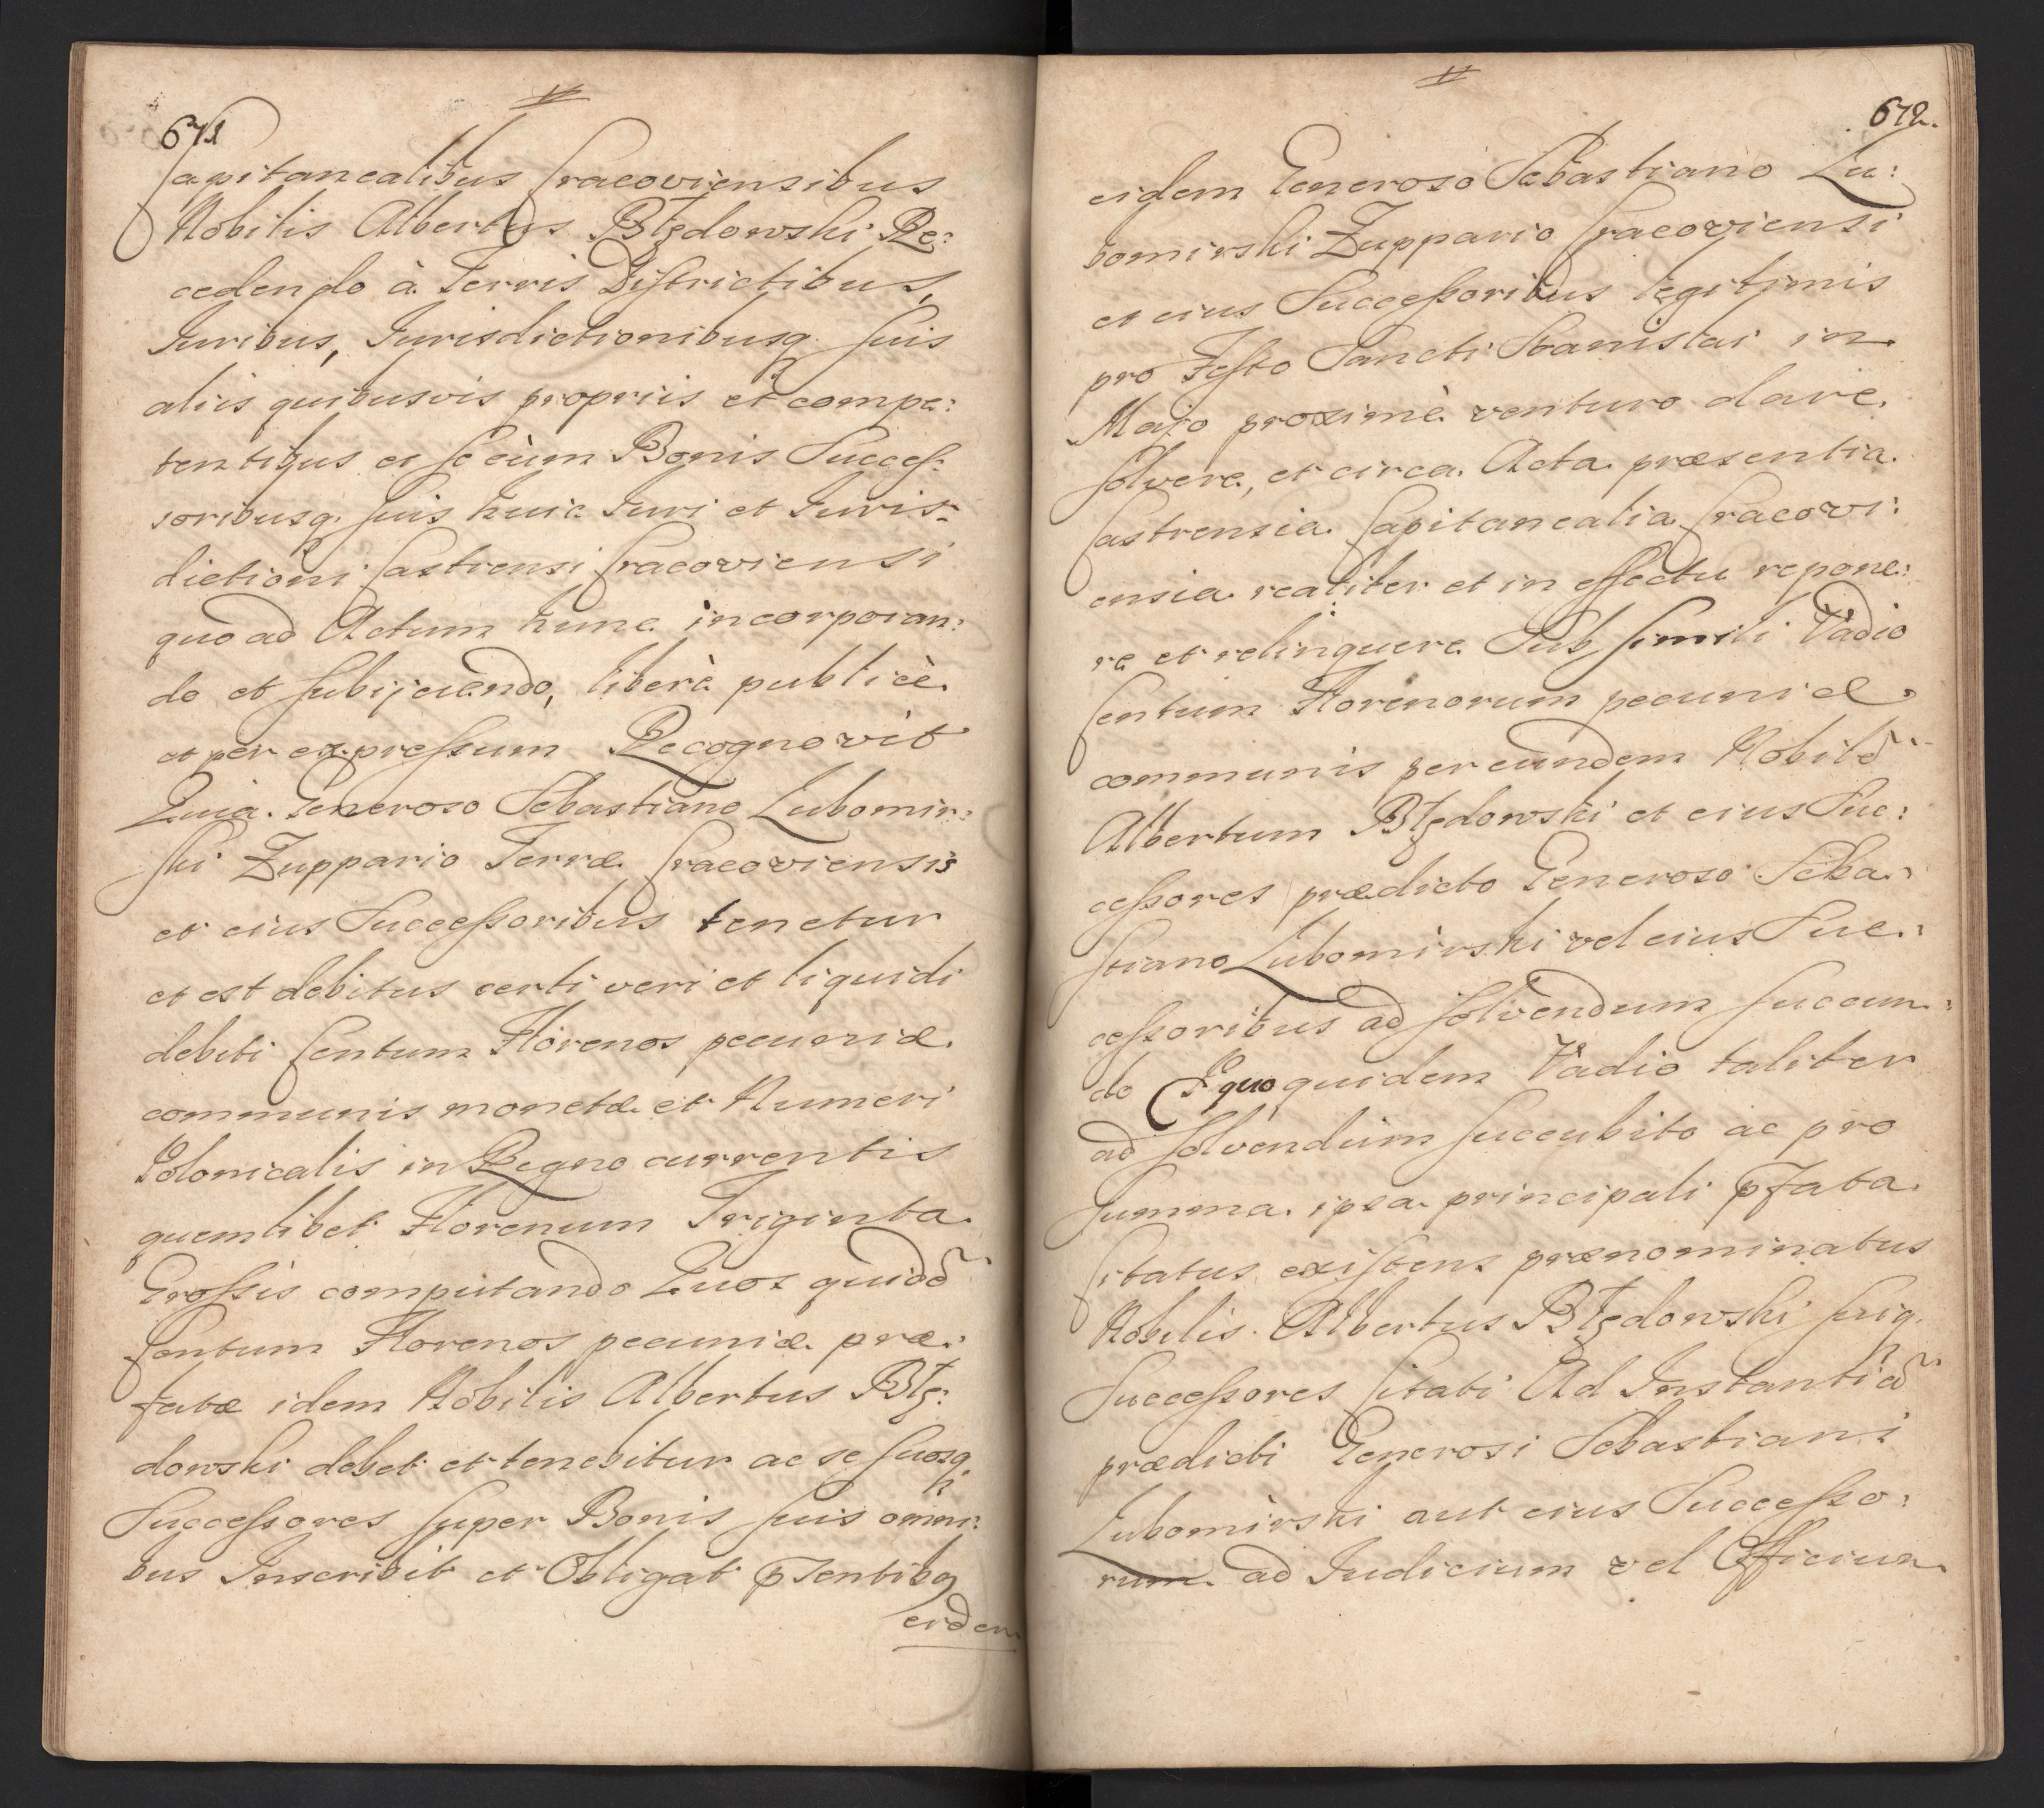 671
Capitanealibus Cracoviensibus
Nobilis Albertus Błędowski Re:
cedendo à Terris Districtibus,
Juribus, Jurisdictionibusq. suis
aliis quibusvis propriis et compe:
tentibus et se cùm Bonis Succes:
soribusq. suis huic Juri et Juris:
dictioni Castrensi Cracoviensi
quo ad Actum hunc incorporan:
do et subijciendo, liberè publicè
et per expressum Recognovit
Quia Generoso Sebastiano Lubomir:
ski Zuppario Terræ Cracoviensis
et eius Successoribus tenetur
et est debitus certi veri et liquidi
debiti Centum Florenos pecuniæ
communis monetæ et Numeri
Polonicalis in Regno currentis
quemlibet Florenum Triginta
Grossis computando Quos quidẽ
Centum Florenos pecuniæ præ:
fatæ idem Nobilis Albertus Błę:
dowski debet et tenebitur ac se suosq.
Successores super Bonis suis omni:
bus Inscribit et Obligat pntibq
eidem
672.
eidem Generoso Sebastiano Lu:
bomirski Zuppario Cracoviensi
et eius Successoribus legitimis
pro Festo Sancti Stanislai in
Majo proximè venturo dare,
solvere, et circa Acta præsentia
Castrensia Capitanealia Cracovi:
ensia realiter et in effectu repone:
re et relinquere Sub simili Vadio
Centum Florenorum pecuniæ
communis per eundem Nobilẽ
Albertum Błędowski et eius Suc:
cessores prædicto Generoso Seba:
stiano Lubomirski vel eius Suc:
cessoribus ad solvendum succum:
do E quo quidem Vadio taliter
ad solvendum succubito ac pro
summa ipsa principali pfata
Citatus existens prænominatus
Nobilis Albertus Błędowski suiq.
Successores Citati Ad Instantiã
prædicti Generosi Sebastiani
Lubomirski aut eius Successo:
rum ad Judicium vel Officium